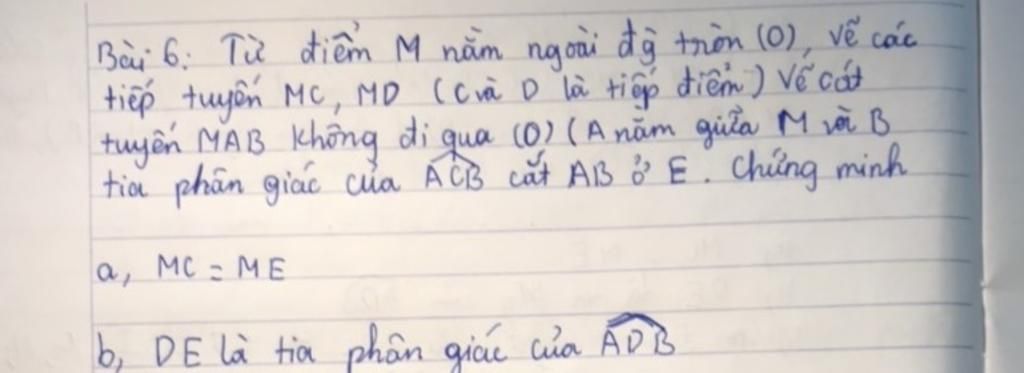 Bài 6: Từ điểm M nằm ngoài đg tròn (O), vẽ các
tiếp tuyến MC, MD (C và D là tiếp điểm) Vẽ cát
tuyến MAB không đi qua (O) (A nằm giữa M và B
tia phân giác của ACB cắt AB ở E. Chứng minh
a, MC = ME
b, DE là tia phân giác của ADB